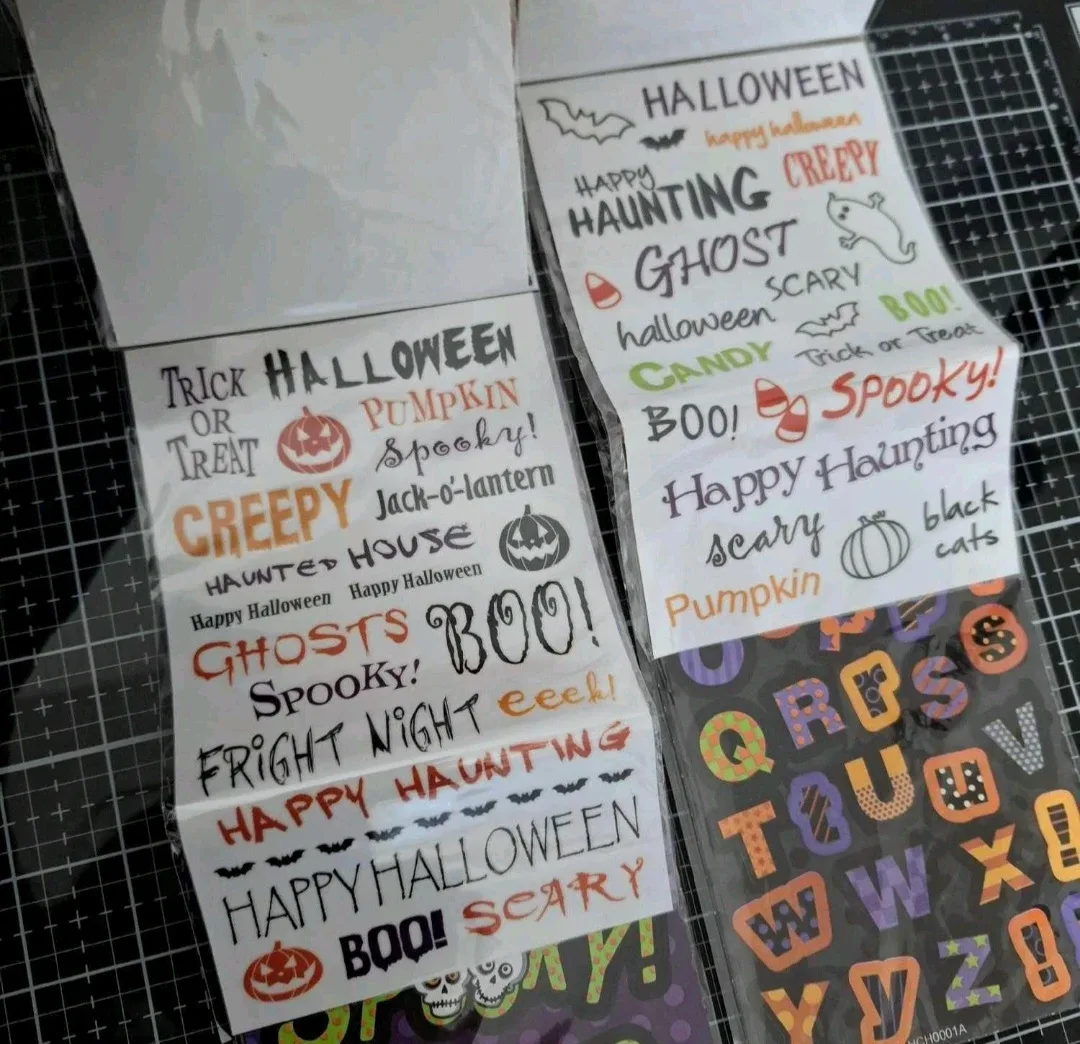 TRICK
OR
TREAT
HALLOWEEN
PUMPKIN
Spooky!
CREEPY
Jack-o'-lantern
HAUNTED HOUSE
Happy Halloween
Happy Halloween
GHOSTS
BOO!
SPOOKY!
FRIGHT NIGHT
eeek!
HAPPY HAUNTING
HAPPY HALLOWEEN
BOO!
SCARY
HALLOWEEN
happy halloween
HAPPY
HAUNTING
CREEPY
GHOST
SCARY
halloween
BOO!
CANDY
Trick or Treat
BOO!
SPOOKY!
Happy Haunting
scary
black
cats
Pumpkin
S
Q R R S
T U U U V
W W X !
Y Y Z !